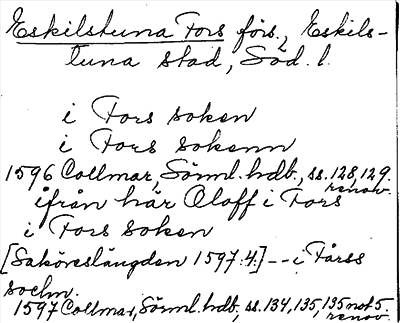 Eskilstuna Fors förs., Eskils-
tuna stad, Söd. l.
i Fors soken
i Fors sokenn
1596 Collmar, Sörml. hdb., ss. 128, 129.
renov.
ifrån här Oloff i Fors
i Fors soken
[Saköreslängden 1597:4.] -- i Fårss
sochn.
1597 Collmar, Sörml. hdb. ss. 134, 135, 135 not 5.
renov.